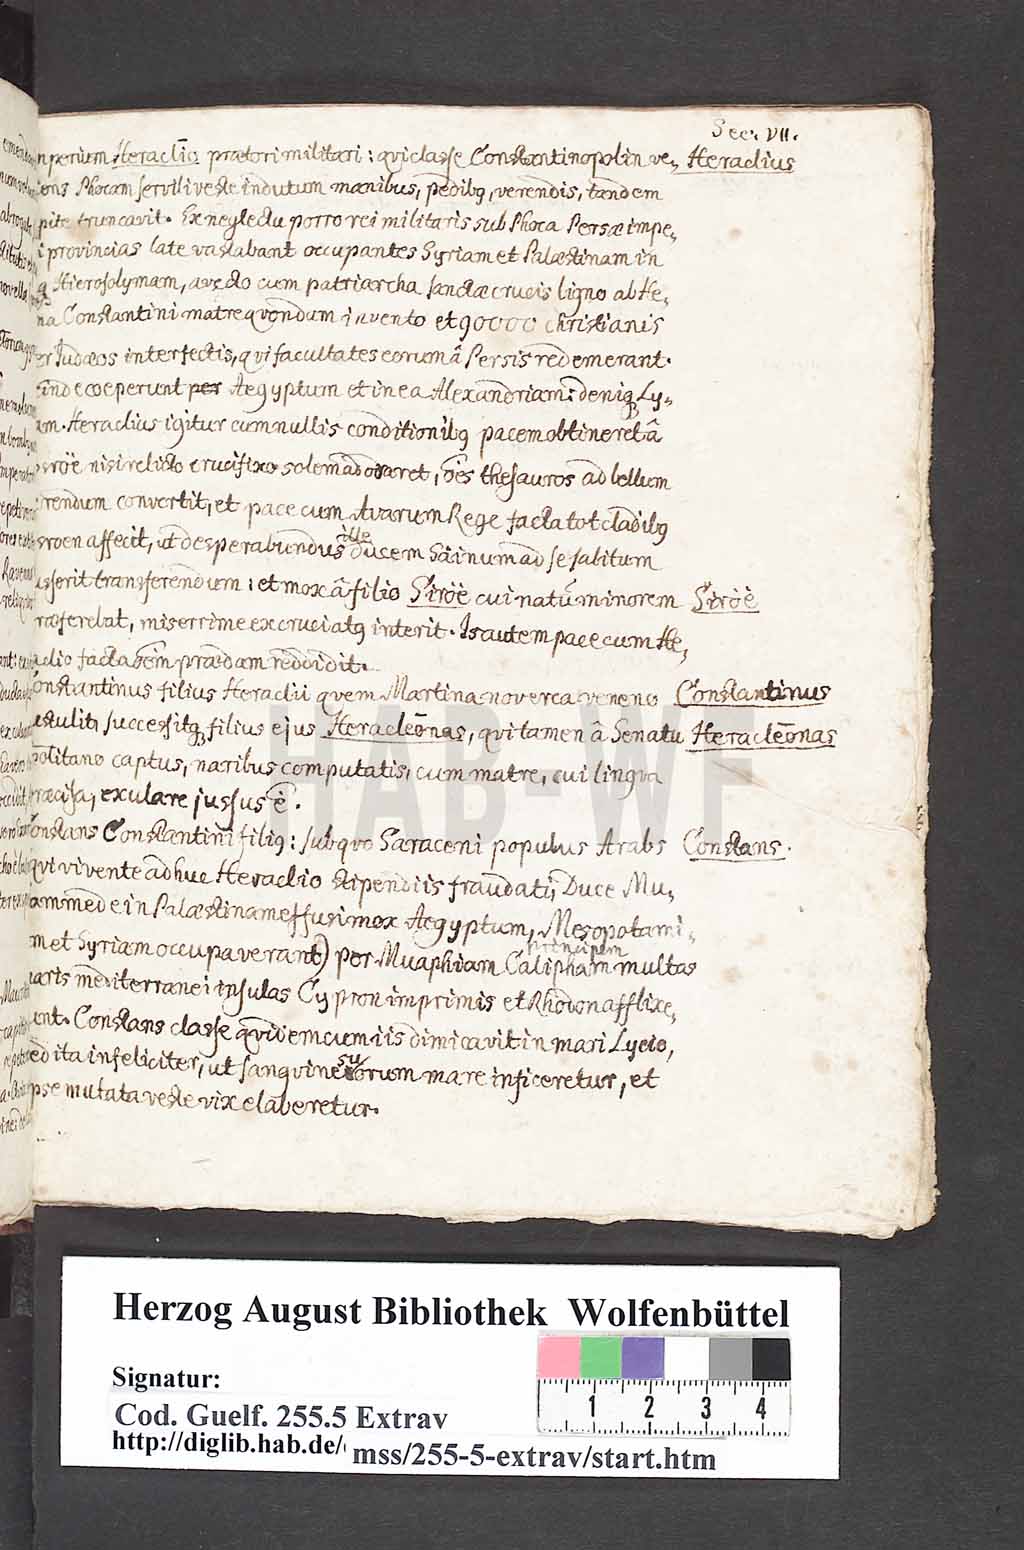 Sec. VII.
nperium Heraclio prætori militari: qui classe Constantinopolin ve, Heraclius
iens Phocam servili veste indutum manibus, pedibq, verendis, tandem
pite truncavit. Ex neglectu porro rei militaris sub Phoca Persæ impe,
i provincias late vastabant occupantes Syriam et Palæstinam in
q Hierosolymam, avecto cum patriarcha sanctæ crucis ligno ab He,
na Constantini matre qvondam invento et 90000 christianis
er Judæos interfectis, qvi facultates eorum â Persis redemerant.
inde coeperunt per Aegyptum et in ea Alexandriam: deniq Ly,
am. Heraclius igitur cum nullis conditionibq pacem obtineret â
sroë nisi relicto crucifixo solem adoraret, oēs thesauros ad bellum
rendum convertit, et pace cum Avarum Rege facta tot cladibq
sroen affecit, ut desperabundus ille ducem Sāinum ad se salitum
usserit transferendum: et mox â filio Siroë cui natū minorem Siroë
ræferebat, miserrime excruciatq interit. Is autem pace cum He,
aclio facta oēm prædam reddidit.
onstantinus filius Heraclii qvem Martina noverca veneno Constantinus
ustulit, successitq filius ejus Heracleōnas, qvi tamen â Senatu Heracleōnas
politano captus, naribus computatis, cum matre, cui lingva
ræcisa, exulare jussus ē.
onstans Constantini filiq: sub qvo Saraceni populus Arabs Constans.
qvi vivente adhuc Heraclio stipendiis fraudati, Duce Mu,
ammede in Palæstinam effusi mox Aegyptum, Mesopotami,
m et Syriam occupaverant) per Muaphiam Calipham principem multas
aris mediterranei insulas Cypron imprimis et Rhodon afflixe,
unt. Constans classe qvidem cum iis dimicavit in mari Lycio,
ed ita infeliciter, ut sangvine suorum mare inficeretur, et
pse mutata veste vix elaberetur.
HAB-WF
Herzog August Bibliothek Wolfenbüttel
Signatur:
Cod. Guelf. 255.5 Extrav
http://diglib.hab.de/
mss/255-5-extrav/start.htm
1 2 3 4